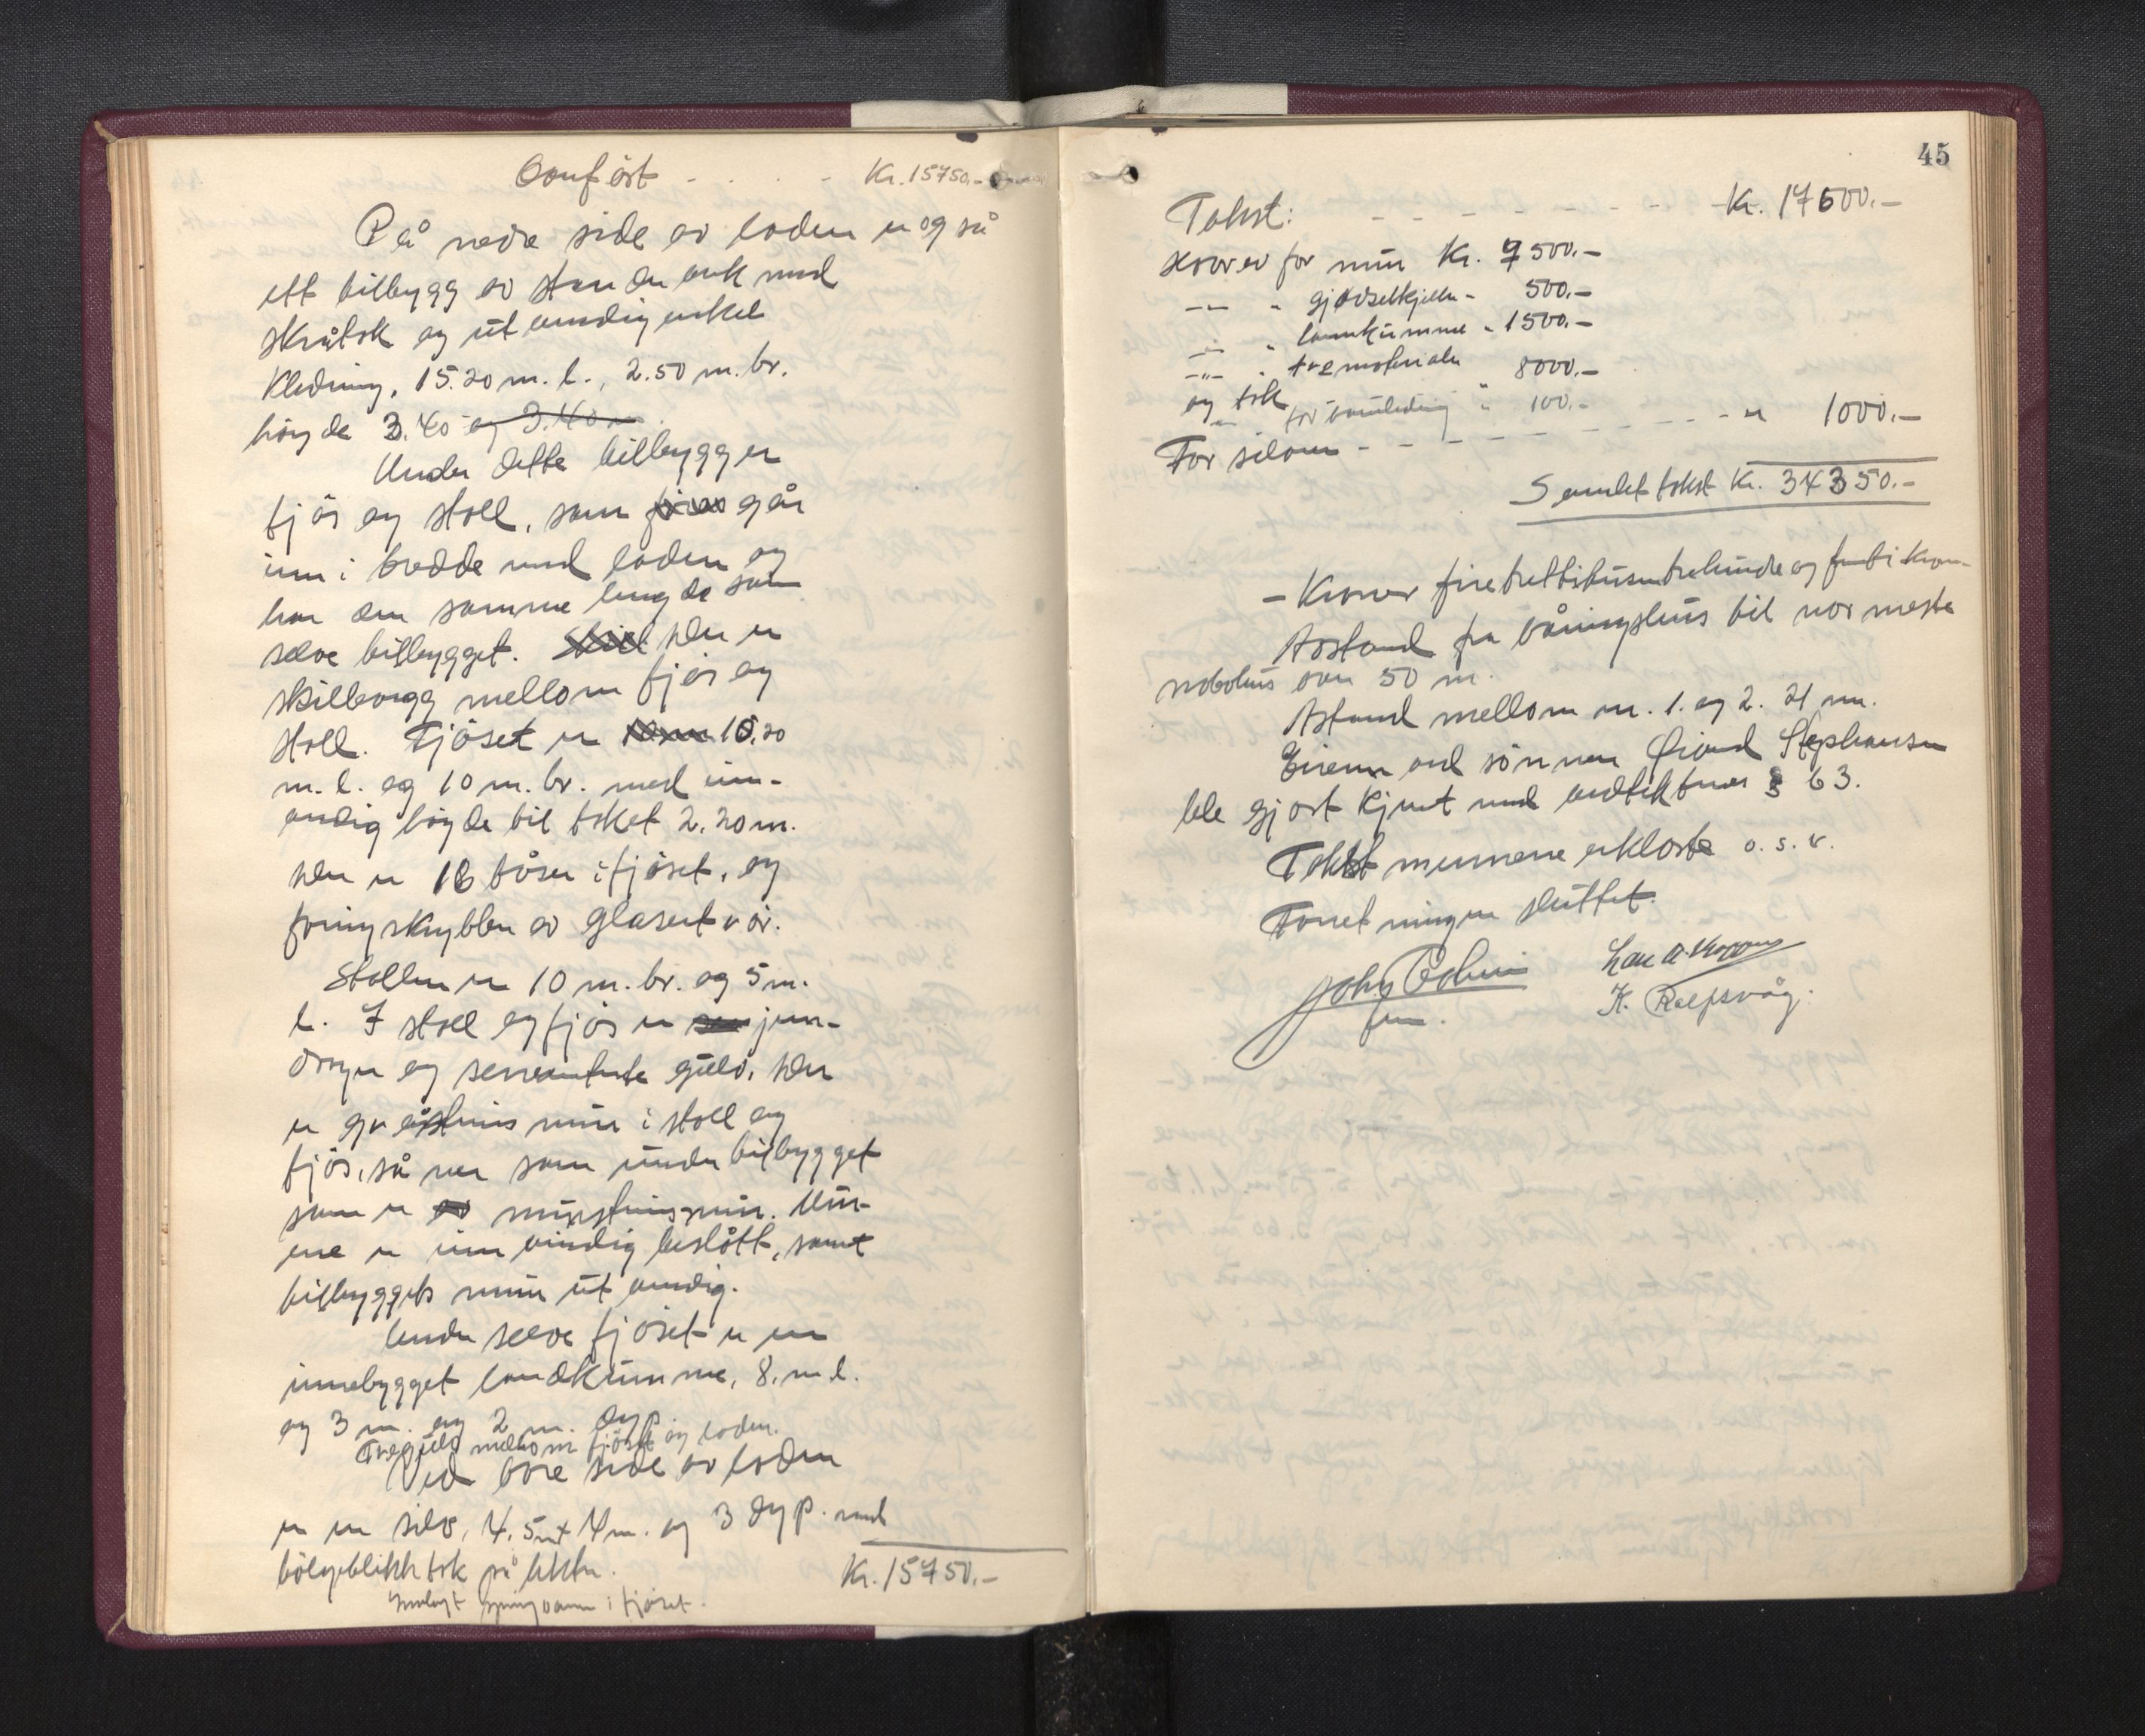 Overført - . . . - Kr. 15750.-
På nedre side av løden er også
ett tilbygg av stenderverk med
skråtak og utvendig enkel
kledning, 15.20 m. l., 2.50 m. br.
høyde 3.40 og 3.40 m
Under dette tilbygg er
fjøs og stall, som går
inn i bredde med løden og
har den samme lengde som
selve tilbygget. Der er
skillevegg mellom fjøs og
stall. Fjøset er 10,20
m. l. og 10 m. br. med inn-
vendig høyde til taket 2,20 m.
Der er 16 båser i fjøset, og
foringskrybber av glasert rør.
Stallen er 10 m. br. og 5 m.
l. I stall og fjøs er jern-
drager og sementerte gulv. Der
er gråstens mur i stall og
fjøs, så vel som under tilbygget
som er murstensmur. Mur-
ene er innvendig beslått, samt
tilbyggets mur utvendig.
Under selve fjøset er en
innebygget landkumme, 8. m l.
og 3 m. og 2 m. dyp.
Tregulv mellom fjøset og løden.
Ved øvre side av løden
er en silo, 4.5 m x 4 m. og 3 dyp. med
bølgeblikktak på lekter.
Innlagt springvann i fjøset.
Kr. 15750.-
45
Takst: - - - - - - - - - Kr. 17600.-
Herav for mur Kr. 7500.-
-"- " gjødselkjeller - 500.-
-"- " landkumme " 1500.-
-"- " trematerialer 8000.-
og tak
-"- for vannledning " 100.-
For siloen - - - - - - - - - " 1000.-
Samlet takst Kr. 34350.-
- Kroner firetrettitusentrehundre og femti kroner
Avstand fra våningshus til nærmeste
nabohus over 50 m.
Avstand mellom nr. 1. og 2. 21 m.
Eieren ved sønnen Øivind Stephansen
ble gjort kjent med vedtektenes § 63.
Takstmennene erklærte o. s. v.
Forretningen sluttet.
John
fm.
K. Rolfsvåg.